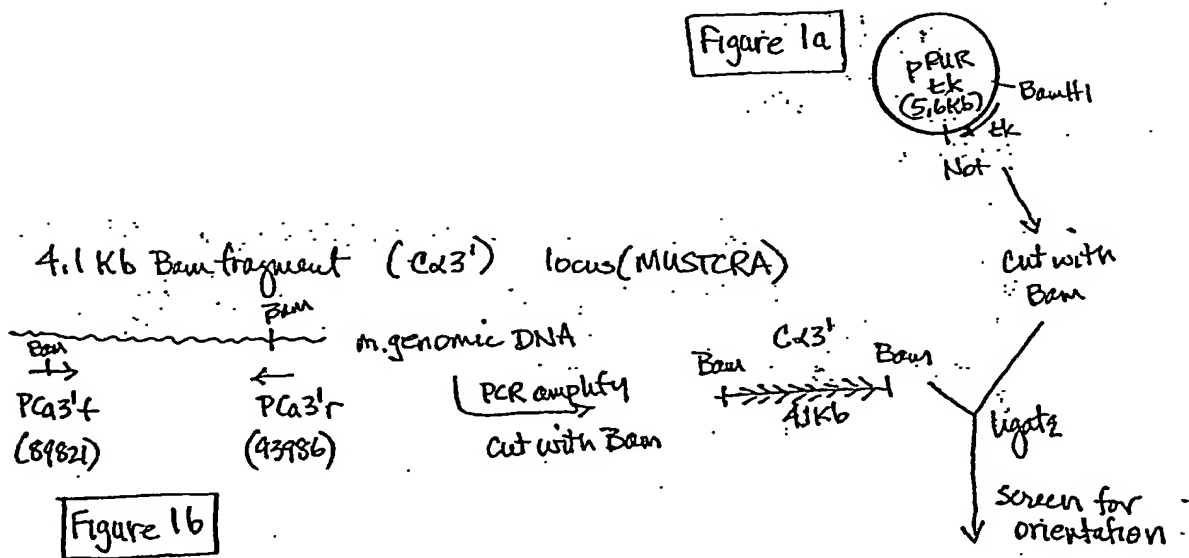 Figure 1a
pPUR
tk
(5.6Kb)
BamHI
tk
Not
cut with
Bam
4.1 Kb Bam fragment (Cα3') locus (MUSTCRA)
Bam
Bam
m. genomic DNA
PCa3'f
(89821)
PCa3'r
(93986)
PCR amplify
cut with Bam
Cα3'
Bam
Bam
4.1Kb
ligate
screen for
orientation
Figure 1b